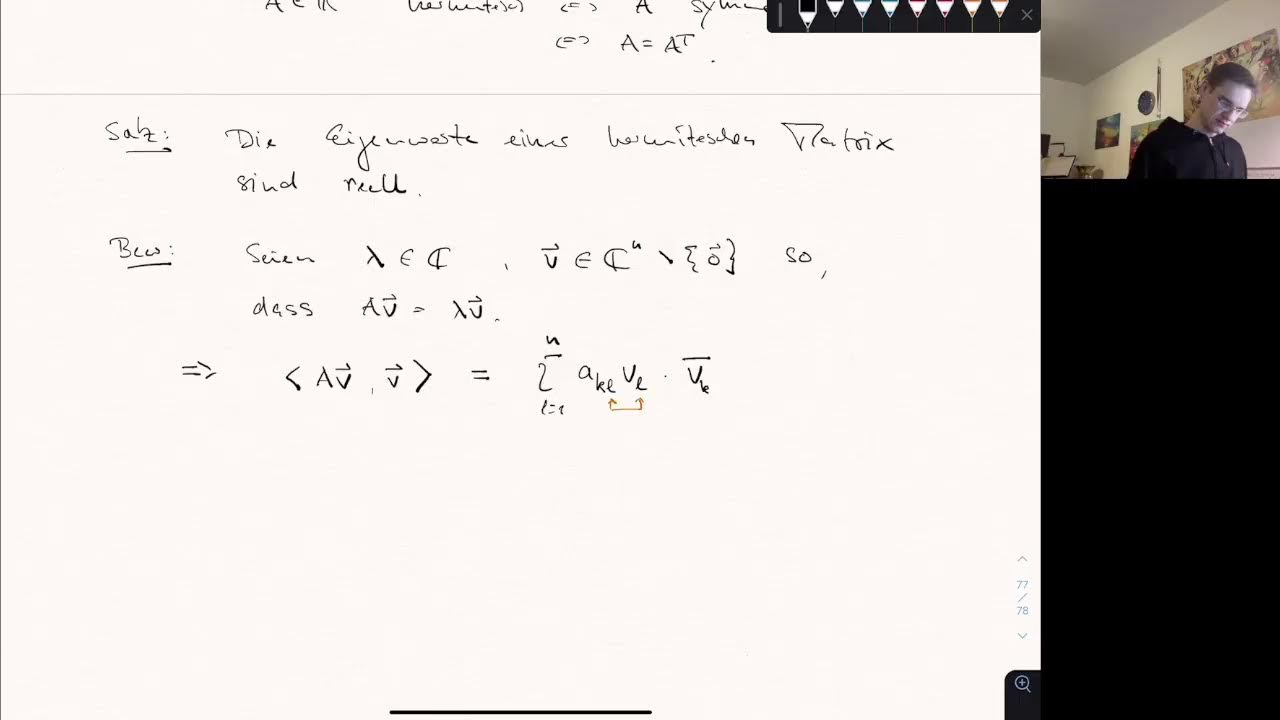 A ∈ ℝ hermitesch <=> A symme
<=> A = Aᵀ.
Satz: Die Eigenwerte einer hermiteschen Matrix
sind reell.
Bew: Seien λ ∈ ℂ, v⃗ ∈ ℂⁿ \ {0⃗} so,
dass Av⃗ = λv⃗.
=> ⟨Av⃗, v⃗⟩ = ∑ₗ₌₁ⁿ aₖₗ vₗ · v̅ₖ
77
/
78